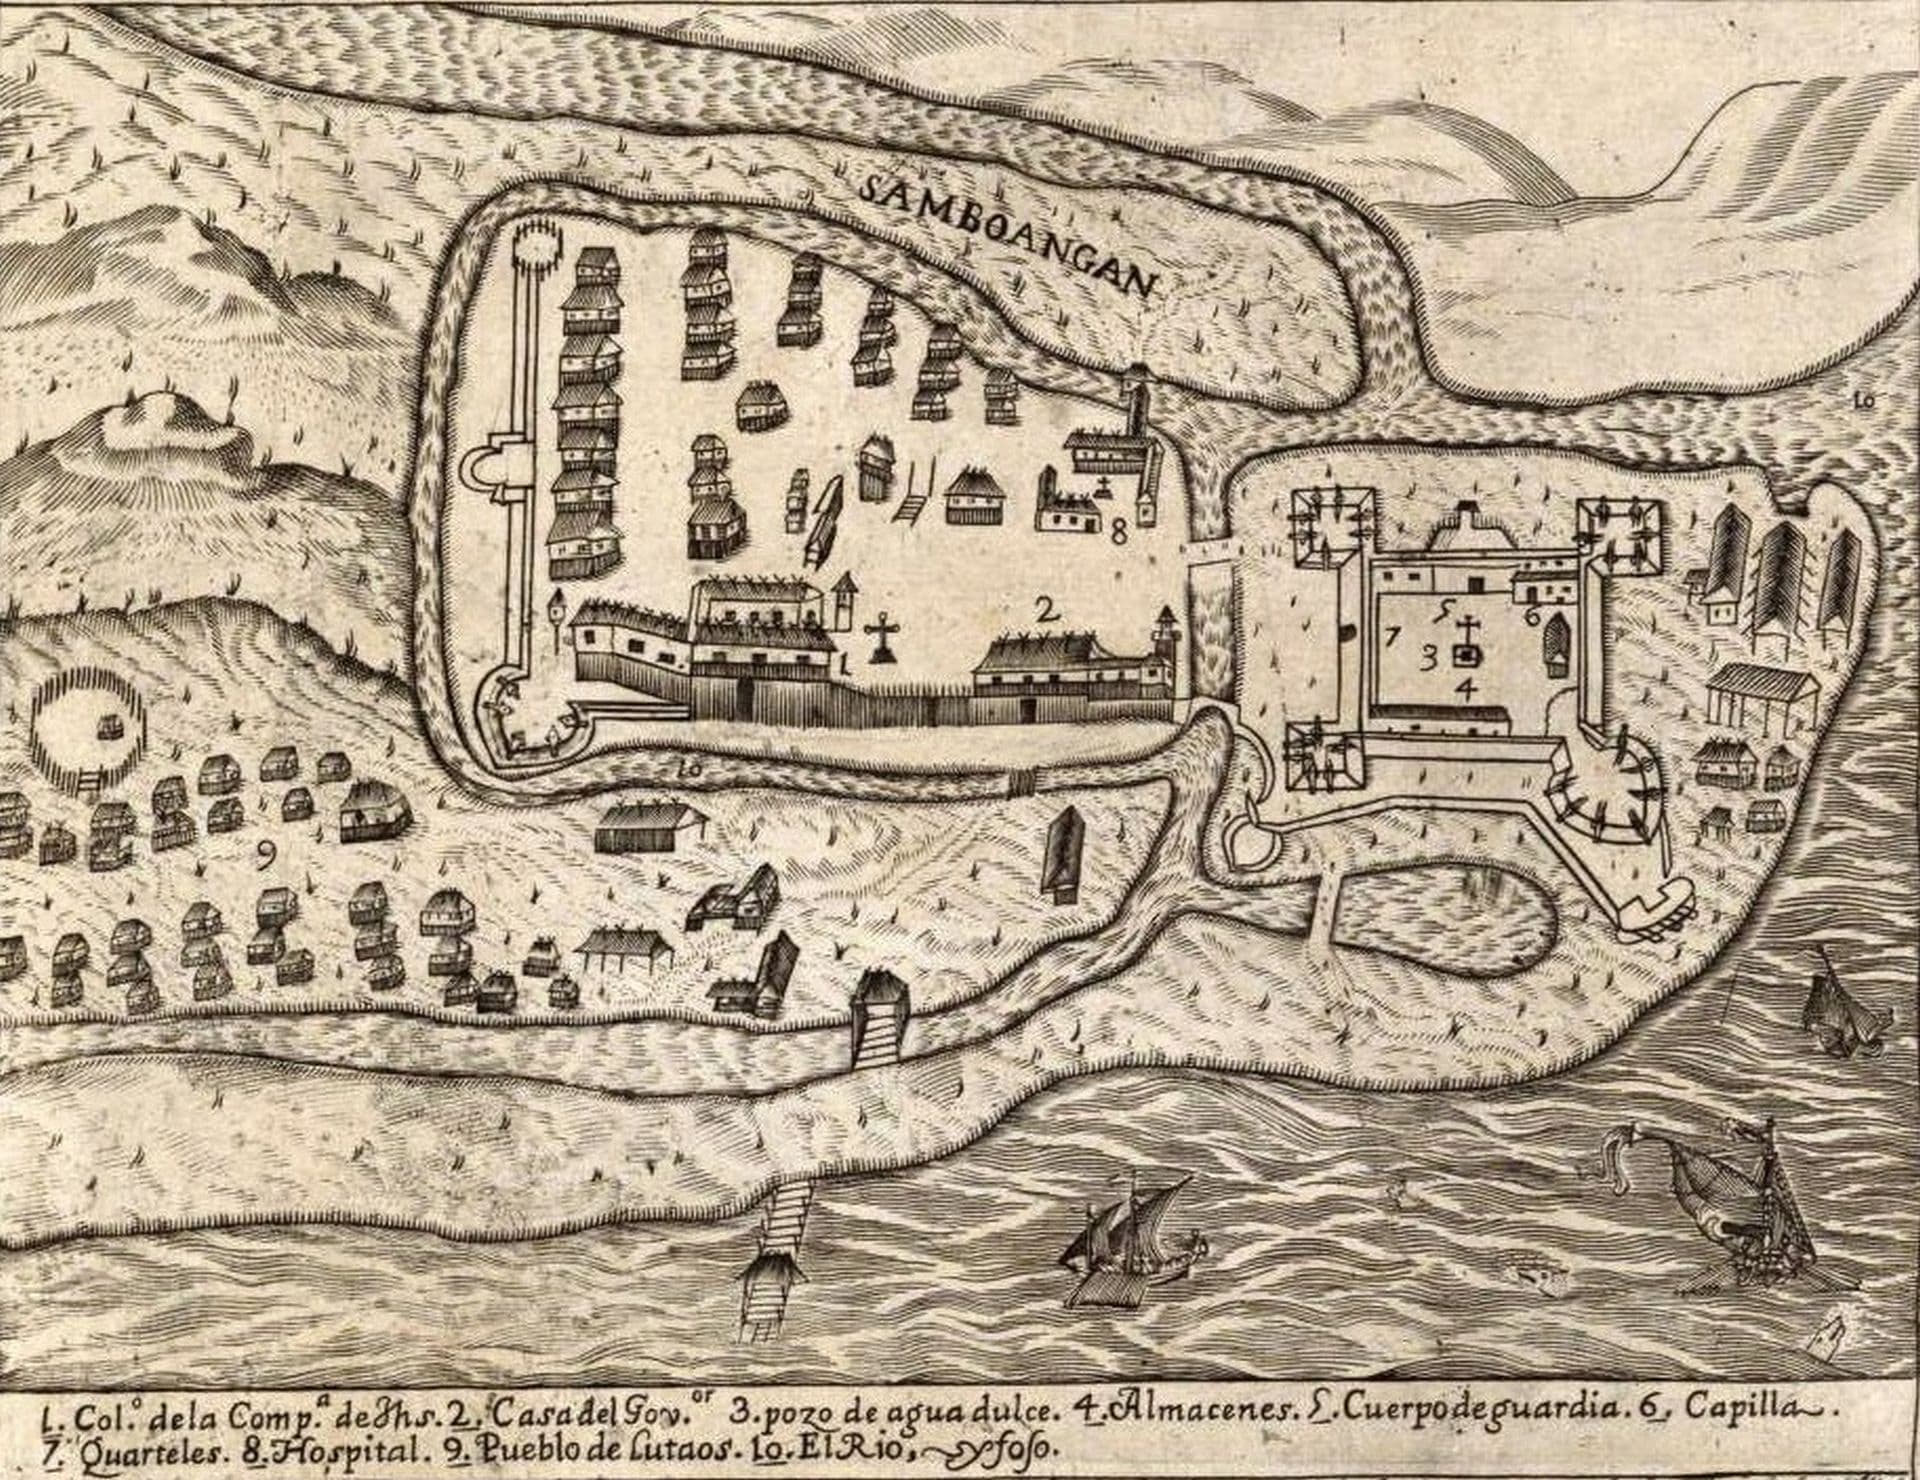 SAMBOANGAN
10
8
2
1
5
6
7
3
4
10
9
1. Col.º dela Comp.ª de Jhs. 2. Casa del Gov.or 3. pozo de agua dulce. 4. Almacenes. 5. Cuerpo de guardia. 6. Capilla.
7. Quarteles. 8. Hospital. 9. Pueblo de Lutaos. 10. El Rio, y foso.